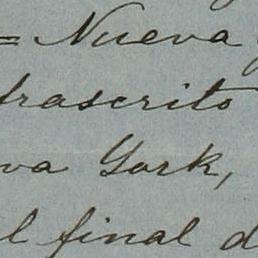 = Nueva
trascrito
va York,
l final d